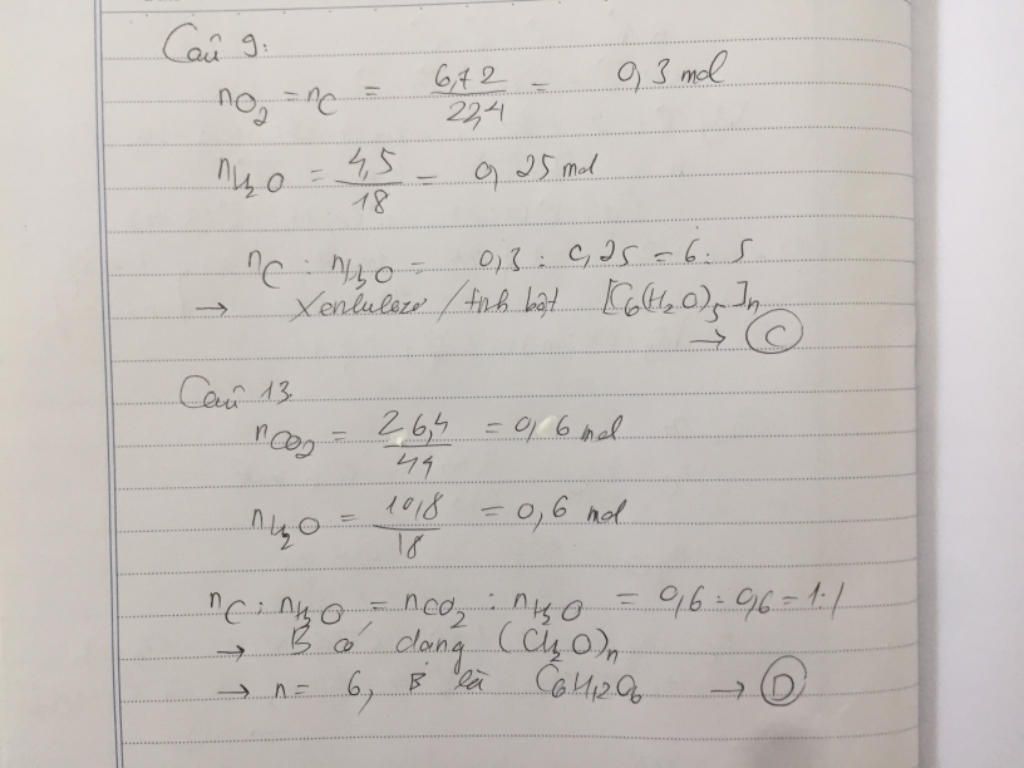 Câu 9:
nO₂ = nC = 6,72/22,4 = 0,3 mol
nH₂O = 4,5/18 = 0,25 mol
nC : nH₂O = 0,3 : 0,25 = 6 : 5
→ Xenlulozơ / tinh bột [C₆(H₂O)₅]n
→ C
Câu 13.
nCO₂ = 26,4/44 = 0,6 mol
nH₂O = 10,8/18 = 0,6 mol
nC : nH₂O = nCO₂ : nH₂O = 0,6 : 0,6 = 1 : 1
→ B có dạng (CH₂O)n
→ n = 6, B là C₆H₁₂O₆ → D